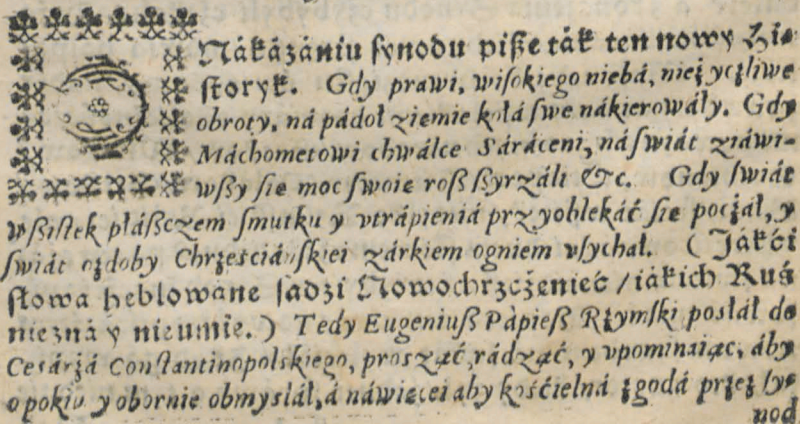 O Nákázániu ſynodu piße ták ten nowy Hi-
ſtoryk. Gdy prawi, wiſokiego niebá, nieżyczliwe
obroty, ná pádoł ziemie kołá ſwe nákierowáły. Gdy
Máchometowi chwálce Sáráceni, ná ſwiát ziáwi-
wßy ſie moc ſwoie roß ßyrzáli &c. Gdy ſwiát
wßiſtek płáßczem ſmutku y vtrápieniá przyoblekáć ſie począł, y
ſwiát ozdoby Chrześciáńſkiei zárkiem ogniem vſychał. (Jákći
ſłowa heblowáne ſadzi Nowochrzczeniec / iákich Ruś
niezná y nieumie.) Tedy Eugeniuß Pápieß Rzymſki poſłáł do
Ceſárzá Conſtantinopolskiego, proſząć, rádząć, y vpomináiąc, áby
o pokiu y obornie obmyſláł, á náwięcei aby kośćielná zgodá przez ſy-
nod